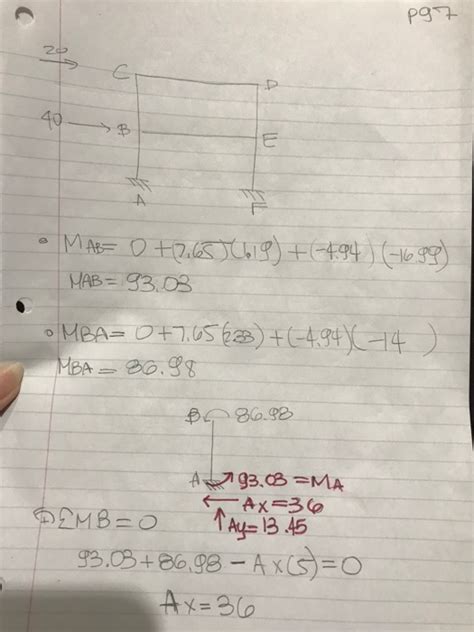 pg 7
20
C D
40 B E
A F
• MAB = 0 + (7.65)(1.19) + (-4.94)(-16.99)
MAB = 93.03
• MBA = 0 + 7.65(2.33) + (-4.94)(-14)
MBA = 86.98
B 86.98
A 93.03 = MA
Ax = 36
Ay = 13.45
ΣMB = 0
93.03 + 86.98 - Ax(5) = 0
Ax = 36